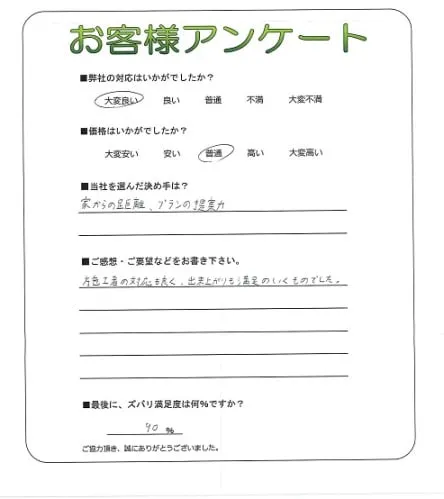 お客様アンケート
■弊社の対応はいかがでしたか?
大変良い 良い 普通 不満 大変不満
■価格はいかがでしたか?
大変安い 安い 普通 高い 大変高い
■当社を選んだ決め手は?
家からの距離、プランの提案力
■ご感想・ご要望などをお書き下さい。
施工者の対応も良く、出来上がりも満足のいくものでした。
■最後に、ズバリ満足度は何%ですか?
90 %
ご協力頂き、誠にありがとうございました。